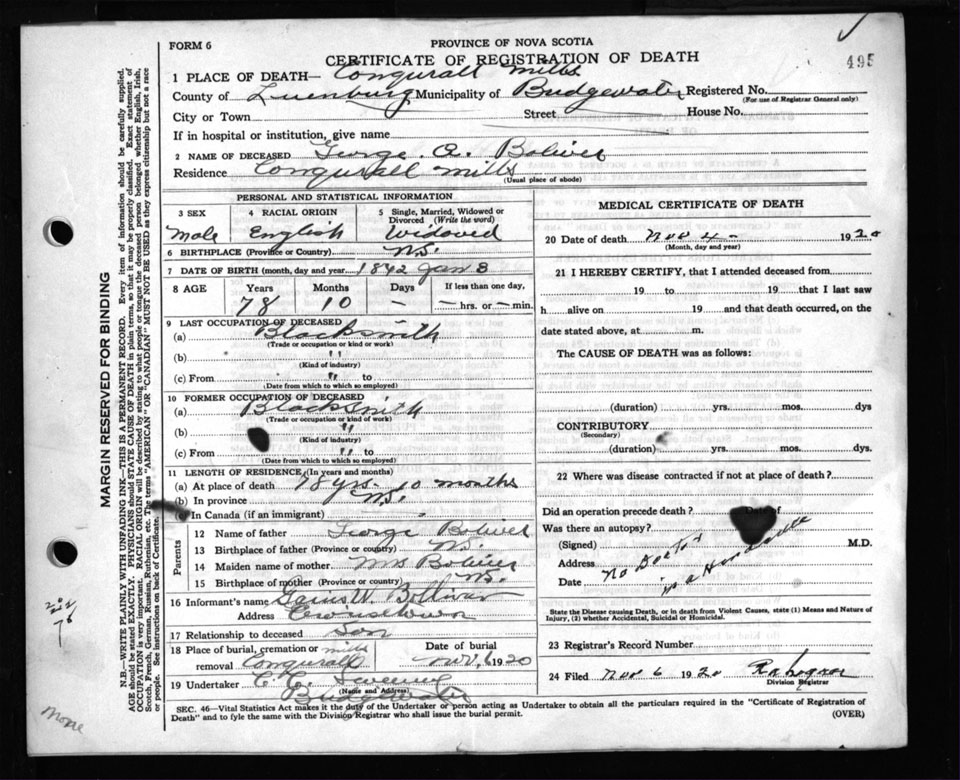 FORM 6
PROVINCE OF NOVA SCOTIA
CERTIFICATE OF REGISTRATION OF DEATH
495
1 PLACE OF DEATH— Conqurall Mills
County of Lunenburg Municipality of Bridgewater Registered No.
(For use of Registrar General only)
City or Town Street House No.
If in hospital or institution, give name
2 NAME OF DECEASED George. A. Boliver
Residence Conqurall Mills
(Usual place of abode)
PERSONAL AND STATISTICAL INFORMATION
3 SEX 4 RACIAL ORIGIN 5 Single, Married, Widowed or Divorced (Write the word)
Male English Widowed
6 BIRTHPLACE (Province or Country) N.S.
7 DATE OF BIRTH (month, day and year) 1842 Jan 3
8 AGE Years Months Days If less than one day,
78 10 — — hrs. or — min.
9 LAST OCCUPATION OF DECEASED
(a) Blacksmith
(Trade or occupation or kind or work)
(b) "
(Kind of industry)
(c) From " to
(Date from which to which so employed)
10 FORMER OCCUPATION OF DECEASED
(a) Blacksmith
(Trade or occupation or kind of work)
(b) "
(Kind of industry)
(c) From " to
(Date from which to which so employed)
11 LENGTH OF RESIDENCE (In years and months)
(a) At place of death 78 yrs. 10 months
(b) In province N.S.
(c) In Canada (if an immigrant)
Parents
12 Name of father George Boliver
13 Birthplace of father (Province or country) N.S.
14 Maiden name of mother Mrs Boliver
15 Birthplace of mother (Province or country) N.S.
16 Informant's name W. Bolliver
Address
17 Relationship to deceased Son
18 Place of burial, cremation or removal Conqurall Mills
Date of burial Nov. 6 1920
19 Undertaker C. C.
(Name and Address)
Bridgewater
MEDICAL CERTIFICATE OF DEATH
20 Date of death Nov 4 - 1920
(Month, day and year)
21 I HEREBY CERTIFY, that I attended deceased from
19 to 19 that I last saw
h alive on 19 and that death occurred, on the
date stated above, at m.
The CAUSE OF DEATH was as follows:
(duration) yrs. mos. dys
CONTRIBUTORY
(Secondary)
(duration) yrs. mos. dys.
22 Where was disease contracted if not at place of death?
Did an operation precede death? Date of
Was there an autopsy?
(Signed) M.D.
Address
Date
No Doctor in attendance
State the Disease causing Death, or in death from Violent Causes, state (1) Means and Nature of
Injury, (2) whether Accidental, Suicidal or Homicidal.
23 Registrar's Record Number
24 Filed Nov 6 1920
Division Registrar
SEC. 46—Vital Statistics Act makes it the duty of the Undertaker or person acting as Undertaker to obtain all the particulars required in the "Certificate of Registration of
Death" and to fyle the same with the Division Registrar who shall issue the burial permit.
(OVER)
MARGIN RESERVED FOR BINDING
N.B.—WRITE PLAINLY WITH UNFADING INK—THIS IS A PERMANENT RECORD. Every item of information should be carefully supplied.
AGE should be stated EXACTLY. PHYSICIANS should STATE CAUSE OF DEATH in plain terms, so that it may be properly classified. Exact statement of
OCCUPATION is very important. RACIAL ORIGIN will be described by stating to what people or tongue the deceased person belonged whether English, Irish,
Scotch, French, German, Russian, Ruthenian, etc. The terms "AMERICAN" OR "CANADIAN" MUST NOT BE USED as they express citizenship but not a race
or people. See instructions on back of Certificate.